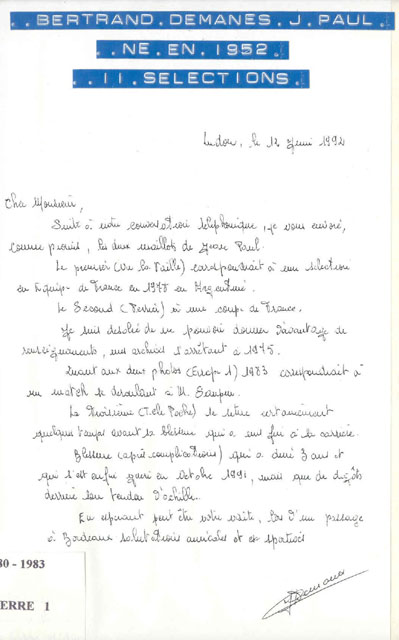 ..BERTRAND.DEMANES.J.PAUL..
..NE.EN.1952
..11.SELECTIONS.
Ludon, le 12 Juin 1992
Cher Monsieur,
Suite à notre conversation téléphonique, je vous envoie,
comme promis, les deux maillots de Jean Paul.
Le premier (Vu la Taille) correspondrait à une sélection
en Equipe de France en 1978 en Argentine.
Le Second (Perrier) à une coupe de France.
Je suis désolé de ne pouvoir donner davantage de
renseignements, mes archives s'arrêtant à 1975.
Quant aux deux photos (Europe 1) 1983 correspondrait à
un match se déroulant à M. Saupin.
La Troisième (Télé Poche) se situe certainement
quelques temps avant la blessure qui a mis fin à la carrière.
Blessure (après complications) qui a duré 3 ans et
qui s'est enfin guérie en Octobre 1991, mais que de dégâts
derrière son tendon d'achille.
En espérant peut être votre visite, lors d'un passage
à Bordeaux salutations amicales et sportives
80 - 1983
ERRE 1